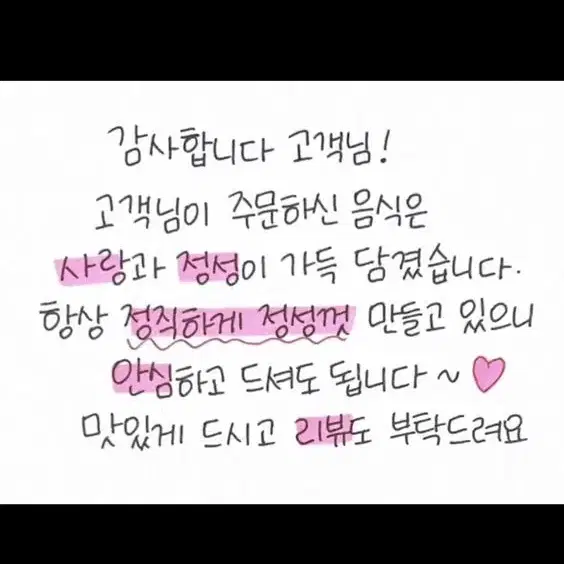 감사합니다 고객님!
고객님이 주문하신 음식은
사랑과 정성이 가득 담겼습니다.
항상 정직하게 정성껏 만들고 있으니
안심하고 드셔도 됩니다~♡
맛있게 드시고 리뷰도 부탁드려요